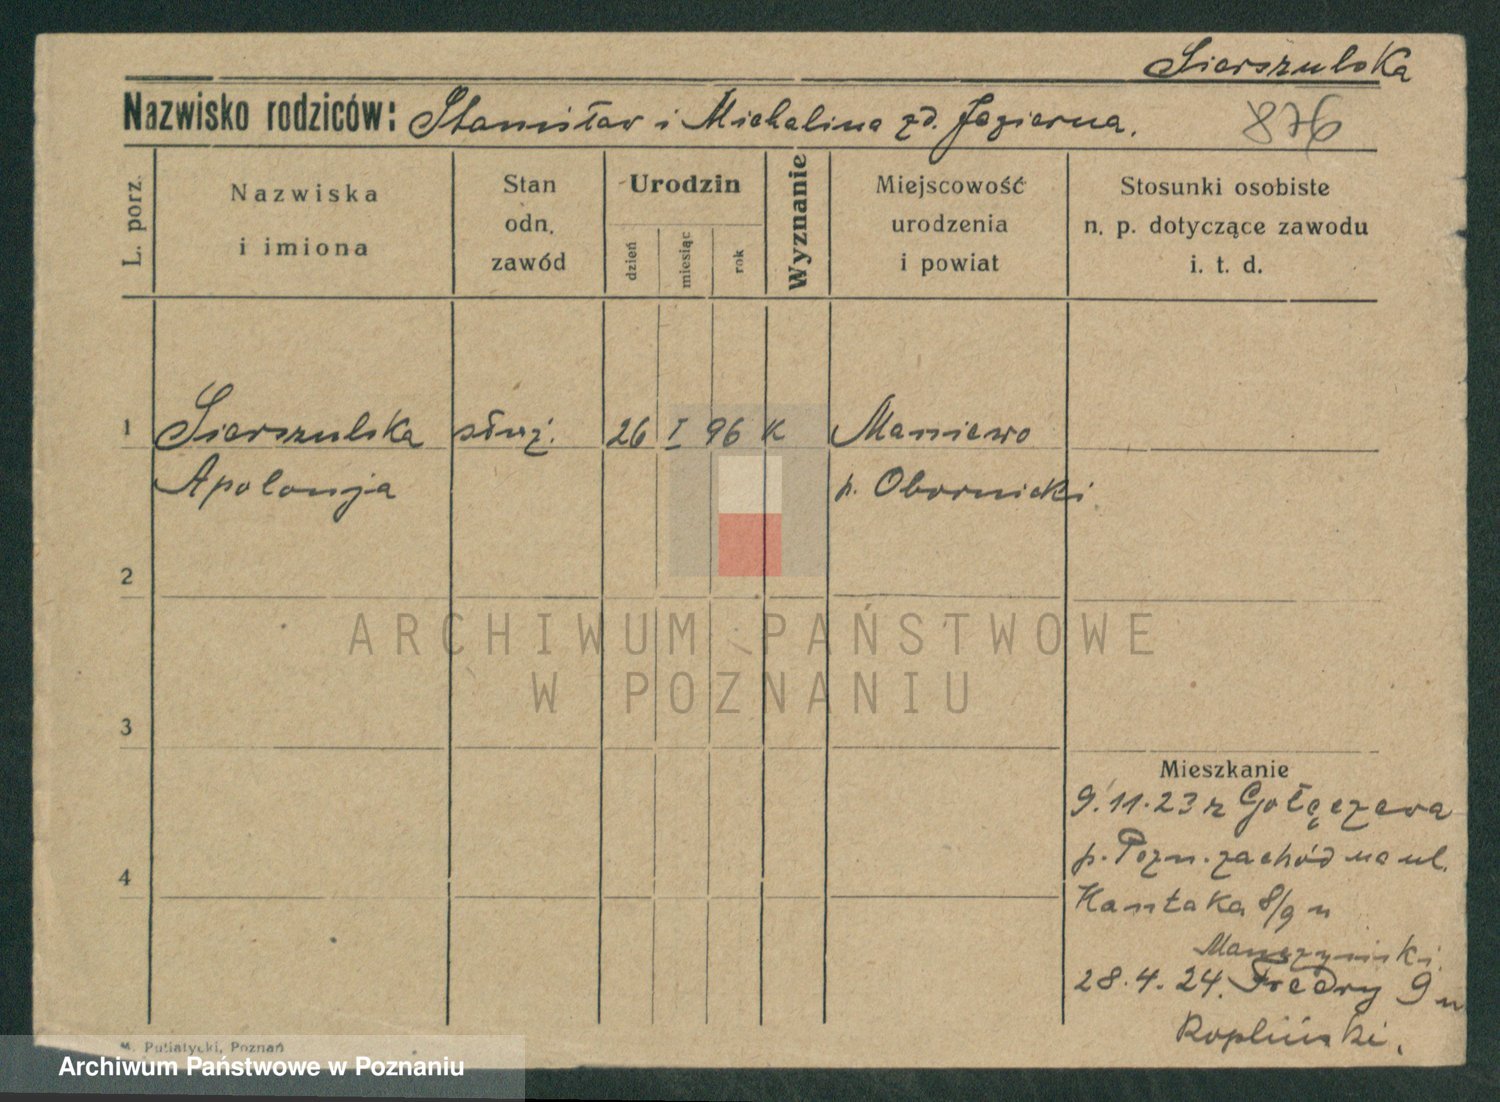 Sierszulska
Nazwisko rodziców: Stanisław i Michalina zd. Jezierna.
876
L. porz.
Nazwiska
i imiona
Stan
odn.
zawód
Urodzin
dzień
miesiąc
rok
Wyznanie
Miejscowość
urodzenia
i powiat
Stosunki osobiste
n. p. dotyczące zawodu
i. t. d.
1 Sierszulska służ. 26 I 96 K Maniewo
Apolonja p. Obornicki
2
ARCHIWUM PAŃSTWOWE
W POZNANIU
3
Mieszkanie
9.11.23 z Gołęczewa
p. Pozn. zachód na ul.
4
Kantaka 8/9 u
28.4.24. Fredry 9 u
M. Putiatycki, Poznań
Archiwum Państwowe w Poznaniu